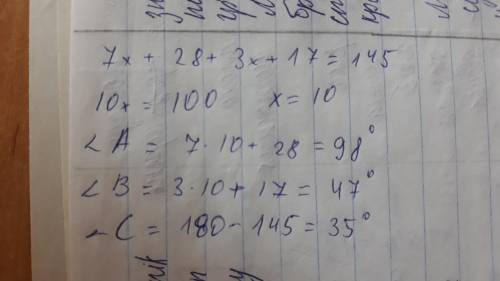 7x + 28 + 3x + 17 = 145
10x = 100 x = 10
∠A = 7·10 + 28 = 98°
∠B = 3·10 + 17 = 47°
∠C = 180 - 145 = 35°